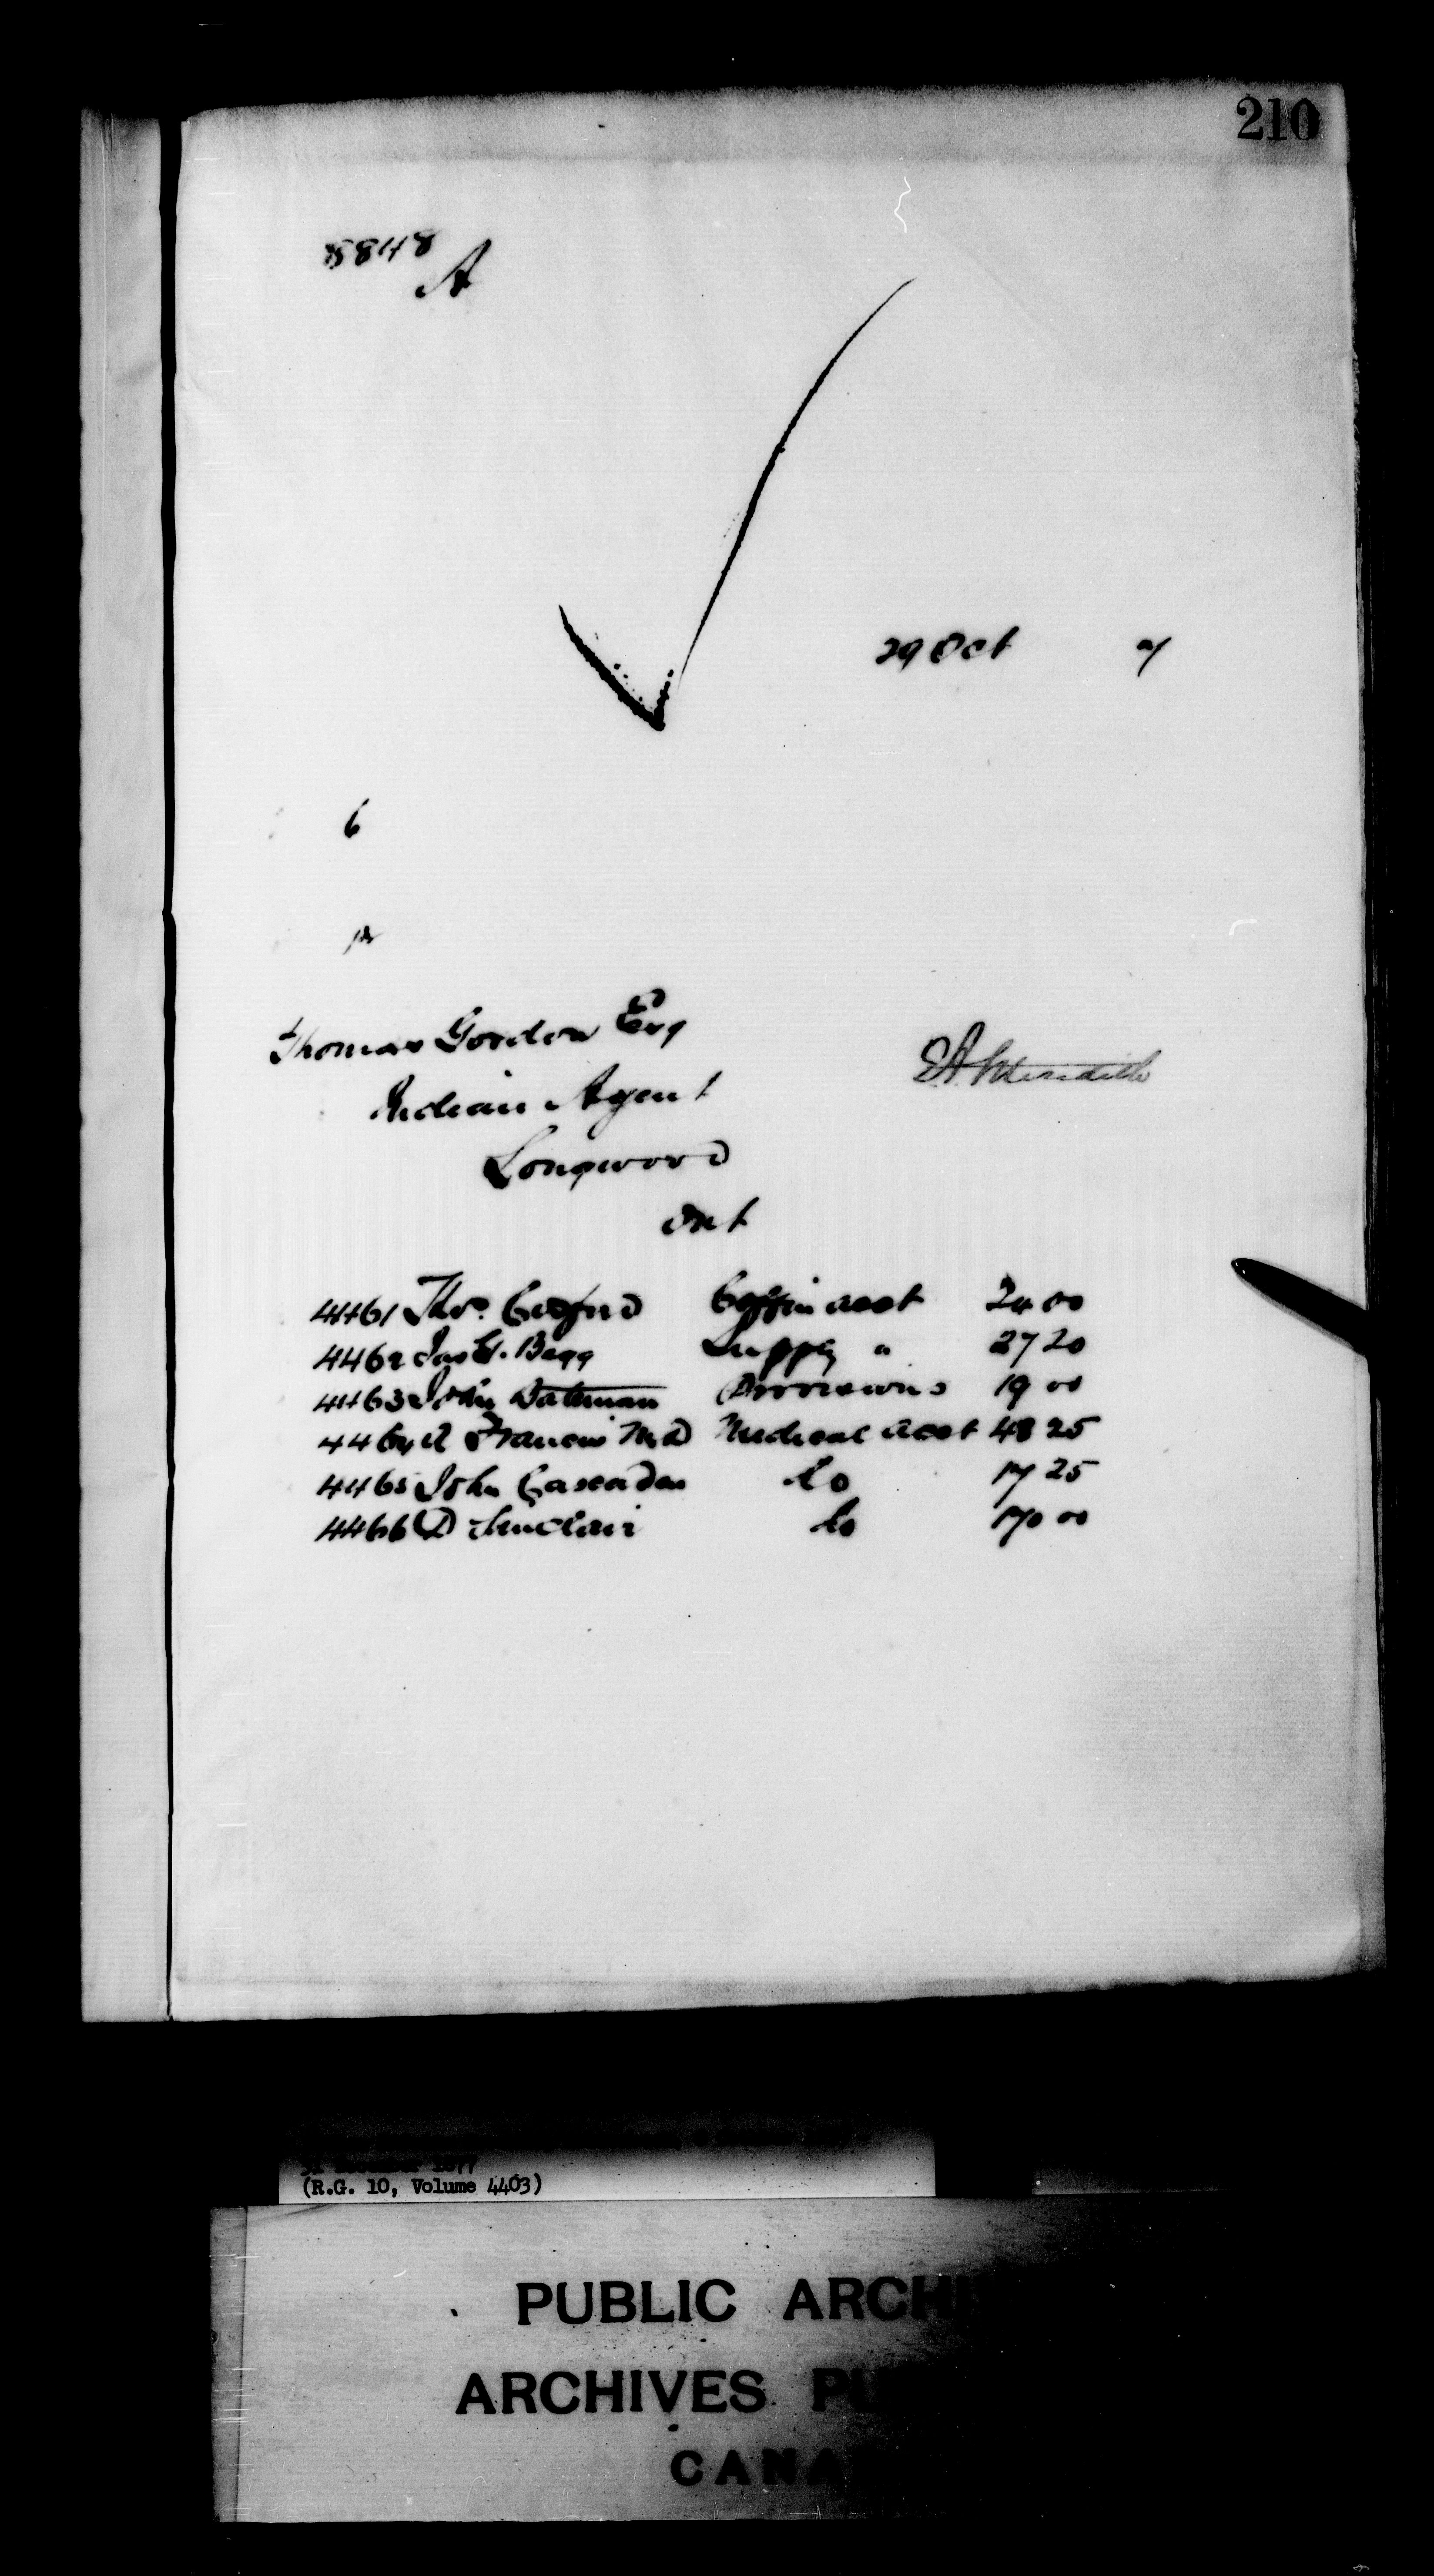 210
8848
A
29 Oct 7
6
Thomas Gordon Esq
EA Meredith
Indian Agent
Longwood
Ont
4461 Thos. Coffin acct 24 00
4462 Jas G. Begg Supply " 27 20
4463 John Bateman Provisions 19 00
4464 Francis M D Medical acct 48 25
4465 John Cascaden do 17 25
4466 D Sinclair do 170 00
(R.G. 10, Volume 4403)
PUBLIC ARCHI
ARCHIVES PU
CANA